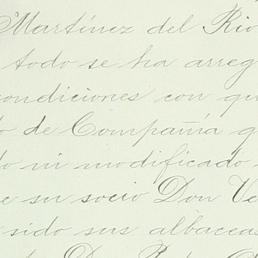 Martínez del Rio
todo se ha arreg
condiciones con qu
o de Compañía q
do ni modificado
e su socio Don Ve
sido sus albaceas